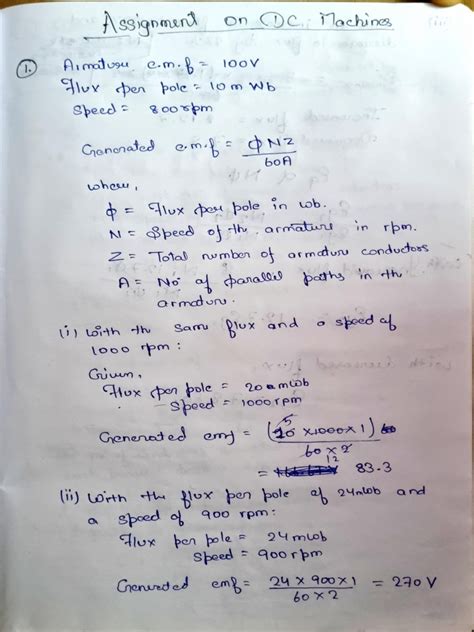 Assignment on DC Machines
1. Armature e.m.f = 100V
Flux per pole = 10 m Wb
Speed = 800 rpm
Generated e.m.f = ϕ NZ / 60A
where,
ϕ = Flux per pole in wb.
N = Speed of the armature in rpm.
Z = Total number of armature conductors
A = No of parallel paths in the
armature.
(i) With the same flux and a speed of
1000 rpm :
Given,
Flux per pole = 20 mwb
Speed = 1000 rpm
Generated emf = ( x1000x1) / 60 x 2
= 83.3
(ii) With the flux per pole of 24mwb and
a speed of 900 rpm:
Flux per pole = 24 mwb
Speed = 900 rpm
Generated emf = 24 x 900 x 1 / 60 x 2 = 270 V